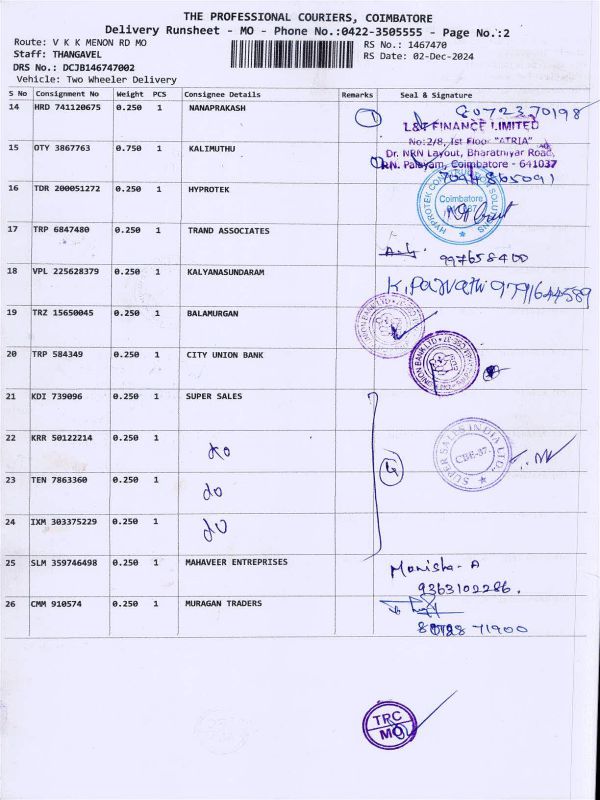 THE PROFESSIONAL COURIERS, COIMBATORE
Delivery Runsheet - MO - Phone No.:0422-3505555 - Page No.:2
Route: V K K MENON RD MO
RS No.: 1467470
Staff: THANGAVEL
RS Date: 02-Dec-2024
DRS No.: DCJB146747002
Vehicle: Two Wheeler Delivery
S No Consignment No Weight PCS Consignee Details Remarks Seal & Signature
14 HRD 741120675 0.250 1 NANAPRAKASH 1 8072370198
L&T FINANCE LIMITED
No:2/8, Ist Floor "ATRIA"
15 OTY 3867763 0.750 1 KALIMUTHU
Dr. NRN Layout, Bharathiyar Road,
RN. Palayam, Coimbatore - 641037
16 TDR 200051272 0.250 1 HYPROTEK
HYPROTEK Coimbatore SOLUTIONS
17 TRP 6847480 0.250 1 TRAND ASSOCIATES
18 VPL 225628379 0.250 1 KALYANASUNDARAM K. Parvathi 9791644589
19 TRZ 15650045 0.250 1 BALAMURGAN
UNION BANK LTD
20 TRP 584349 0.250 1 CITY UNION BANK
UNION BANK LTD
21 KDI 739096 0.250 1 SUPER SALES
22 KRR 50122214 0.250 1 do 4
SUPER SALES INDIA LTD., CBE-37.
23 TEN 7863360 0.250 1 do
24 IXM 303375229 0.250 1 do
25 SLM 359746498 0.250 1 MAHAVEER ENTREPRISES Monisha. A
9363102286.
26 CMM 910574 0.250 1 MURAGAN TRADERS
71900
TRC
MO